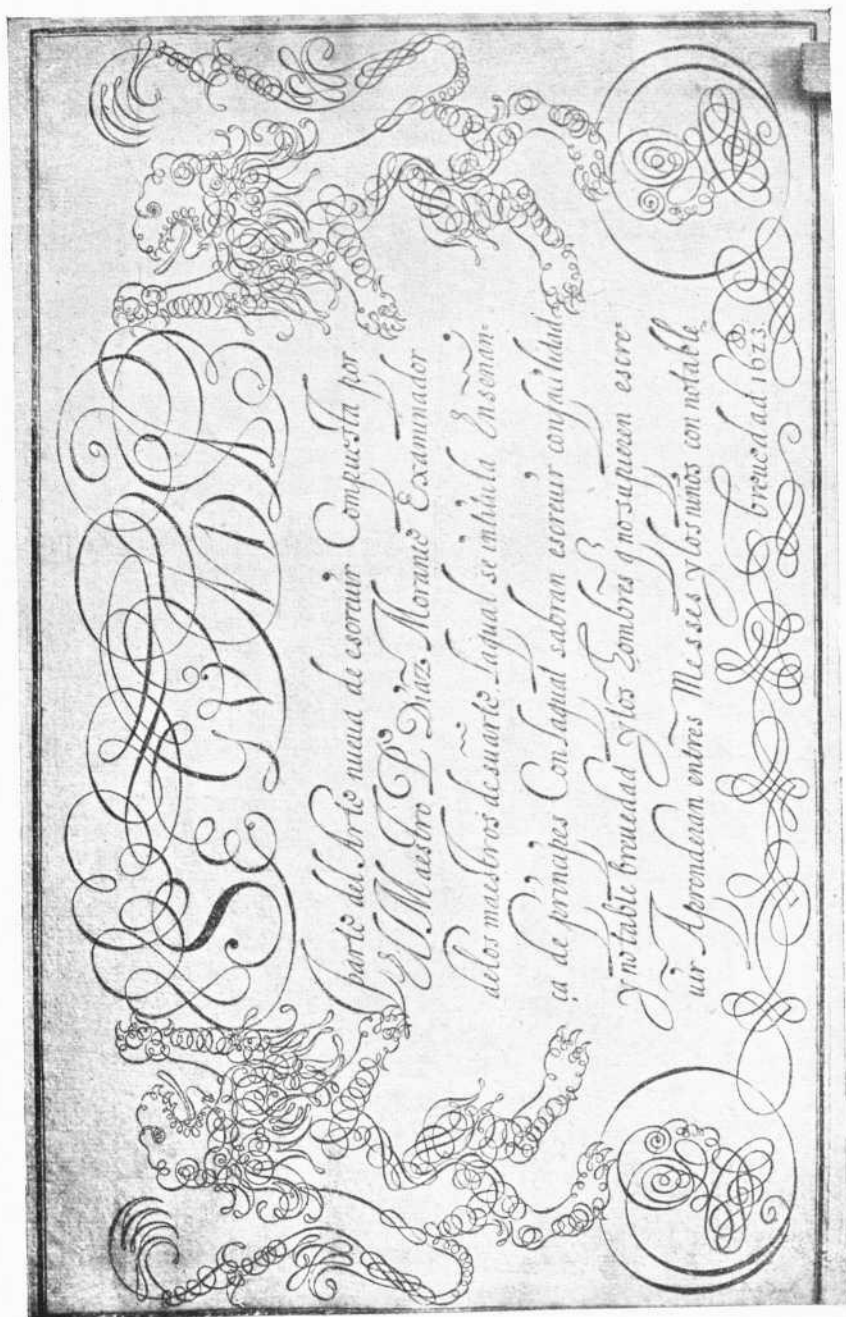 SEGVNDA
parte del Arte nueua de escreuir Compuesta por
El Maestro Po Diaz Morante Examinador
delos maestros desuarte. Laqual se intitula Enseñan=
ça de prinçipes Con laqual sabran escreuir confaçilidad
y notable breuedad y los hombres q̃ no supieren escre=
uir Aprenderan entres Messes y los niños con notable
breuedad 1623.